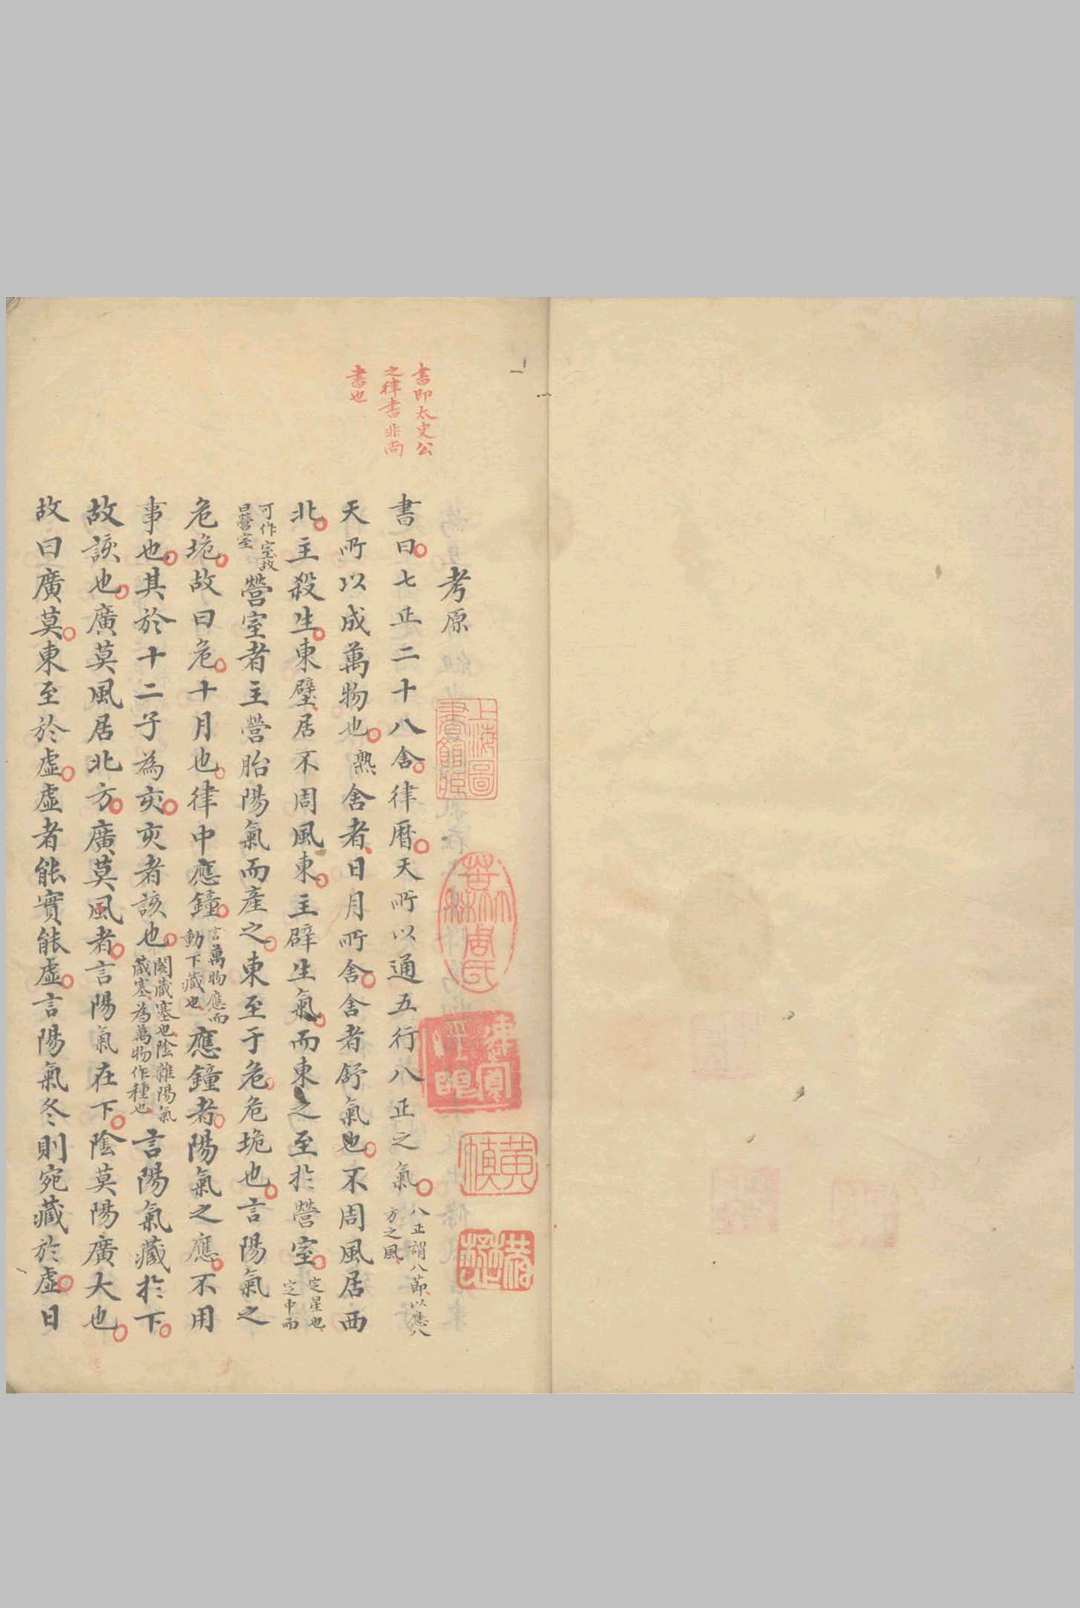 書即太史公
之律書非尚
書也
考原
書曰七正二十八舍律曆天所以通五行八正之氣八正謂八節以應八方之風
天所以成萬物也熟舍者日月所舍舍者舒氣也不周風居西
北主殺生東壁居不周風東主辟生氣而東之至於營室定星也定中而
可作室故曰營室營室者主營胎陽氣而產之東至于危危垝也言陽氣之
危垝故曰危十月也律中應鐘言萬物應而動下藏也應鐘者陽氣之應不用
事也其於十二子為亥亥者該也閡藏塞也陰雜陽氣藏塞為萬物作種也言陽氣藏於下
故該也廣莫風居北方廣莫風者言陽氣在下陰莫陽廣大也
故曰廣莫東至於虛虛者能實能虛言陽氣冬則宛藏於虛日
上海圖
書館藏
黃